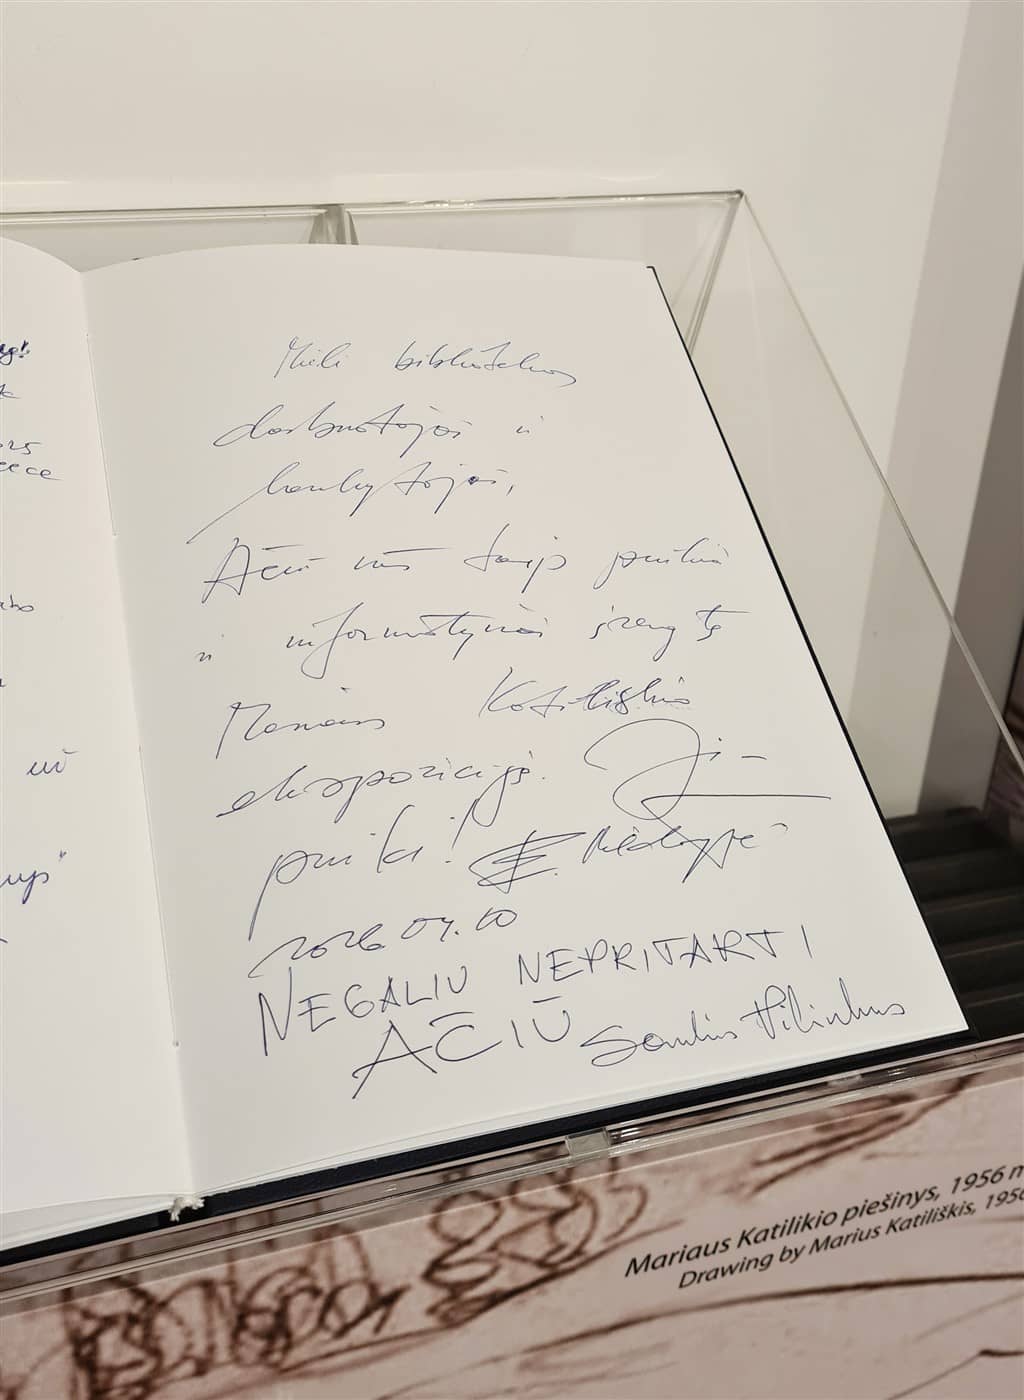 Mieli bibliotekos
darbuotojai ir
lankytojai,
Ačiū už taip puikiai
ir informatyviai įrengtą
Mariaus Katiliškio
ekspoziciją. Ji –
puiki!
2026 04.10
NEGALIU NEPRITARTI
AČIŪ Saulius Pilinkus
už
Mariaus Katilikio piešinys, 1956 m
Drawing by Marius Katiliškis, 1956